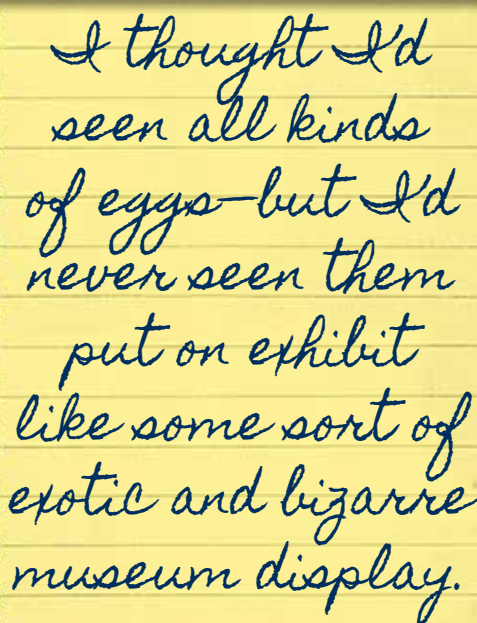 I thought I'd
seen all kinds
of eggs—but I'd
never seen them
put on exhibit
like some sort of
exotic and bizarre
museum display.